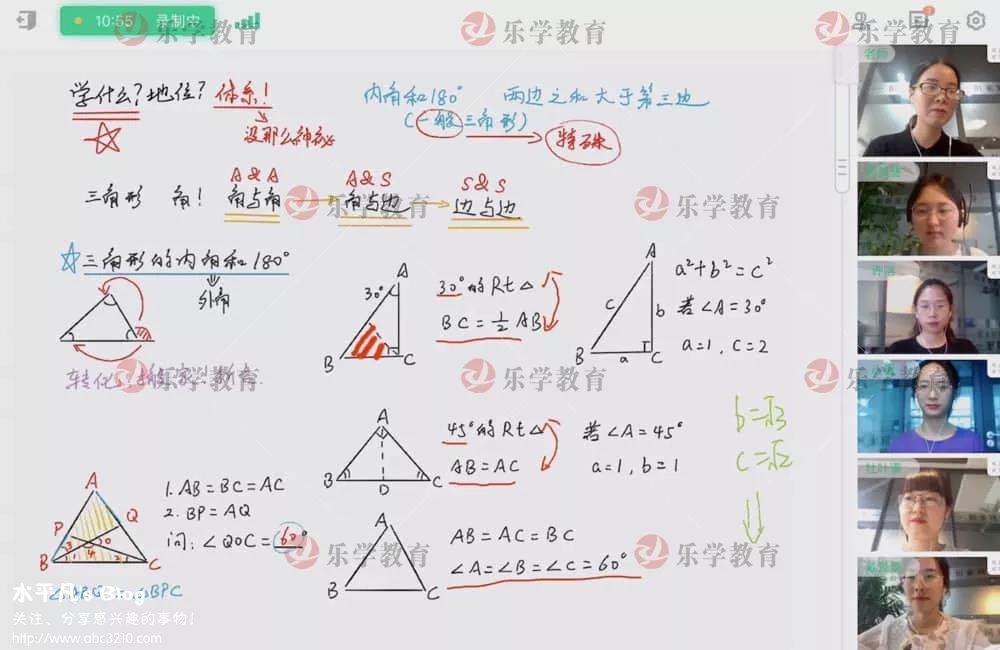 10:55 录制中
乐学教育
学什么?地位?体系!
没那么神秘
内角和180° 两边之和大于第三边
(一般三角形)
特殊
三角形 角!
A & A
角与角
A & S
角与边
S & S
边与边
三角形的内角和180°
外角
转化
A
30°
B
C
30°的Rt△
BC=½AB
A
c
b
B
a
C
a²+b²=c²
若∠A=30°
a=1, c=2
A
B
D
C
45°的Rt△
AB=AC
若∠A=45°
a=1, b=1
b=√3
c=√2
A
P
Q
O
B
C
1. AB=BC=AC
2. BP=AQ
问:∠QOC=60°
BPC
A
B
C
AB=AC=BC
∠A=∠B=∠C=60°
老师
水平凡's Blog
关注、分享感兴趣的事物!
http://www.abc3210.com